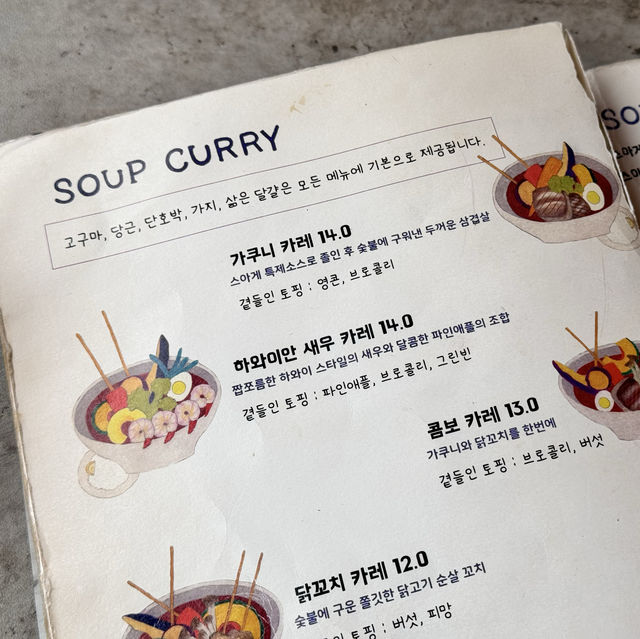 SOUP CURRY
고구마, 당근, 단호박, 가지, 삶은 달걀은 모든 메뉴에 기본으로 제공됩니다.
가쿠니 카레 14.0
스아게 특제소스로 졸인 후 숯불에 구워낸 두꺼운 삼겹살
곁들인 토핑 : 영콘, 브로콜리
하와이안 새우 카레 14.0
짭쪼름한 하와이 스타일의 새우와 달콤한 파인애플의 조합
곁들인 토핑 : 파인애플, 브로콜리, 그린빈
콤보 카레 13.0
가쿠니와 닭꼬치를 한번에
곁들인 토핑 : 브로콜리, 버섯
닭꼬치 카레 12.0
숯불에 구운 쫄깃한 닭고기 순살 꼬치
토핑 : 버섯, 피망
SO